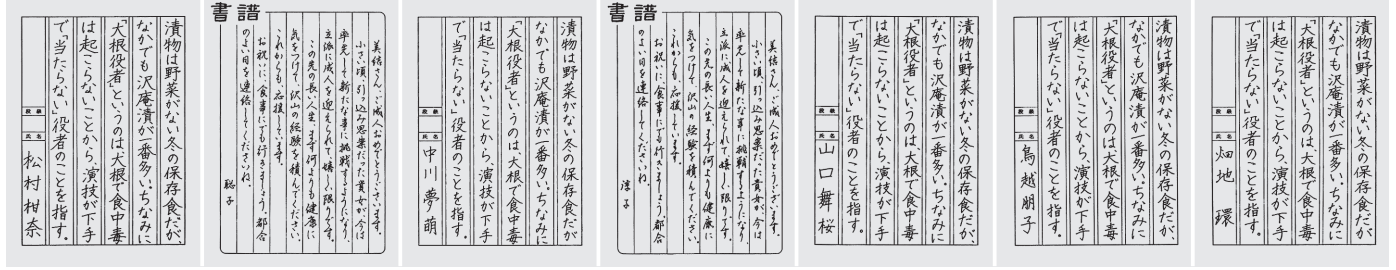 漬物は野菜がない冬の保存食だが、
なかでも沢庵漬が一番多い。ちなみに
「大根役者」というのは、大根で食中毒
は起こらないことから、演技が下手
で「当たらない」役者のことを指す。
段級
氏名
松村柑奈
書譜
美緒さん、ご成人おめでとうございます。
小さい頃、引っ込み思案だった貴女が、今は
率先して新たな事に挑戦するようになり、
立派に成人を迎えられて嬉しい限りです。
この先の長い人生、まず何よりも健康に
気をつけて、沢山の経験を積んでください。
これからも応援しています。
お祝いに、食事にでも行きましょう。都合
のよい日を連絡してくださいね。
聡子
漬物は野菜がない冬の保存食だが
なかでも沢庵漬が一番多い。ちなみに
「大根役者」というのは、大根で食中毒
は起こらないことから、演技が下手
で「当たらない」役者のことを指す。
段級
氏名
中川夢萌
書譜
美緒さん、ご成人おめでとうございます。
小さい頃、引っ込み思案だった貴女が、今は
率先して新たな事に挑戦するようになり、
立派に成人を迎えられて嬉しい限りです。
この先の長い人生、まず何よりも健康に
気をつけて、沢山の経験を積んでください。
これからも、応援しています。
お祝いに、食事にでも行きましょう。都合
のよい日を連絡してくださいね。
淳子
漬物は野菜がない冬の保存食だが、
なかでも沢庵漬が一番多い。ちなみに
「大根役者」というのは、大根で食中毒
は起こらないことから、演技が下手
で「当たらない」役者のことを指す。
段級
氏名
山口舞桜
漬物は野菜がない冬の保存食だが、
なかでも沢庵漬が一番多い。ちなみに
「大根役者」というのは、大根で食中毒
は起こらないことから、演技が下手
で「当たらない」役者のことを指す。
段級
氏名
鳥越朋子
漬物は野菜がない冬の保存食だが、
なかでも沢庵漬が一番多い。ちなみに
「大根役者」というのは、大根で食中毒
は起こらないことから、演技が下手
で「当たらない」役者のことを指す。
段級
氏名
畑地環